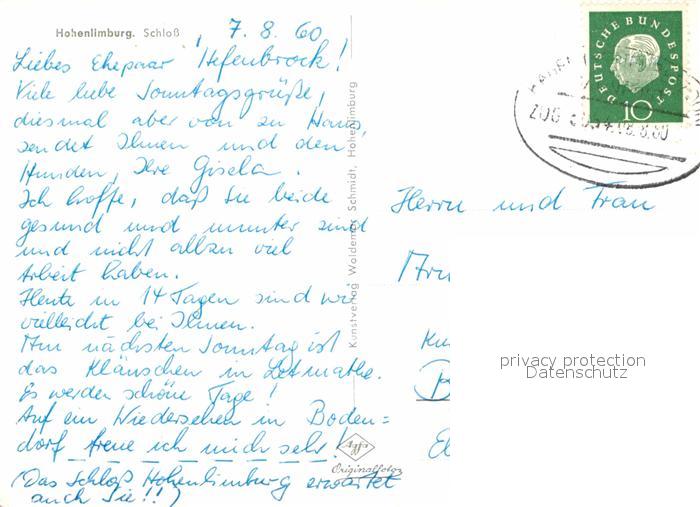 Hohenlimburg. Schloß
7. 8. 60
Liebes Ehepaar Hefenbrock!
Viele liebe Sonntagsgrüße,
diesmal aber von zu Haus,
sendet Ihnen und den
Hunden, Ihre Gisela.
Ich hoffe, daß Sie beide
gesund und munter sind
und nicht allzu viel
Arbeit haben.
Heute in 14 Tagen sind wir
vielleicht bei Ihnen.
Am nächsten Sonntag ist
das Kläuschen in Letmathe.
Es werden schöne Tage!
Auf ein Wiedersehen in Boden=
dorf freue ich mich sehr!
(Das Schloß Hohenlimburg erwartet
auch Sie!!)
Kunstverlag Woldemar Schmidt, Hohenlimburg
Agfa
Originalfoto
DEUTSCHE BUNDESPOST
10
ZUG
8.60
Herrn und Frau
privacy protection
Datenschutz